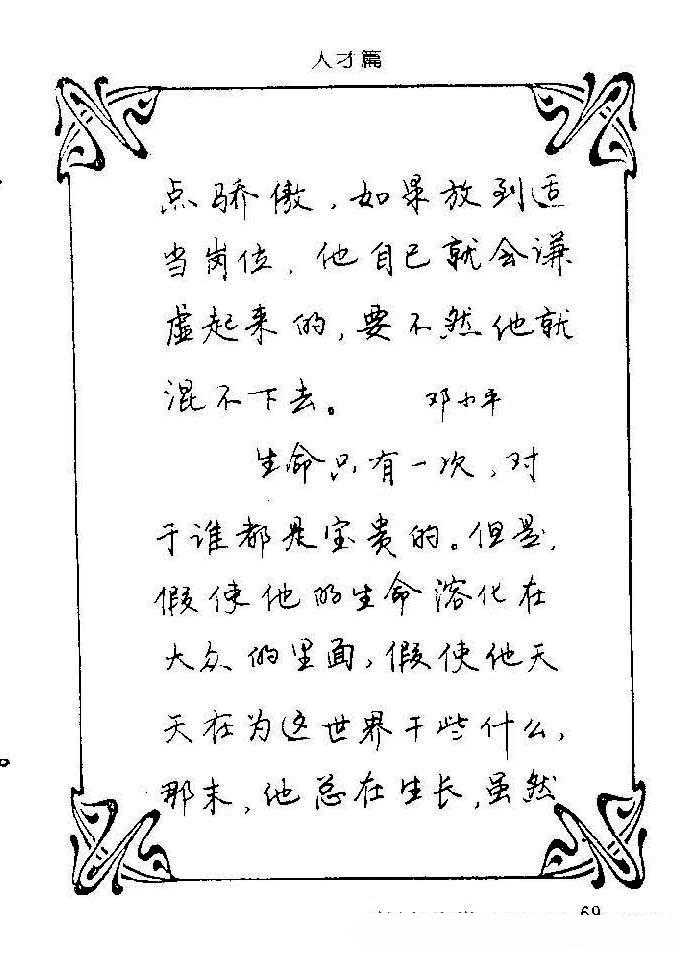 人才篇
点骄傲，如果放到适
当岗位，他自己就会谦
虚起来的，要不然他就
混不下去。 邓小平
生命只有一次，对
于谁都是宝贵的。但是，
假使他的生命溶化在
大众的里面，假使他天
天在为这世界干些什么，
那末，他总在生长，虽然
69